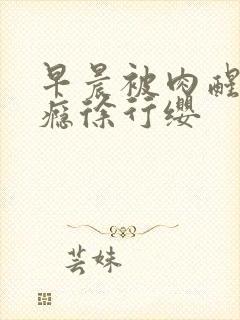 早晨被肉醒
瘾徐行缨
芸妹